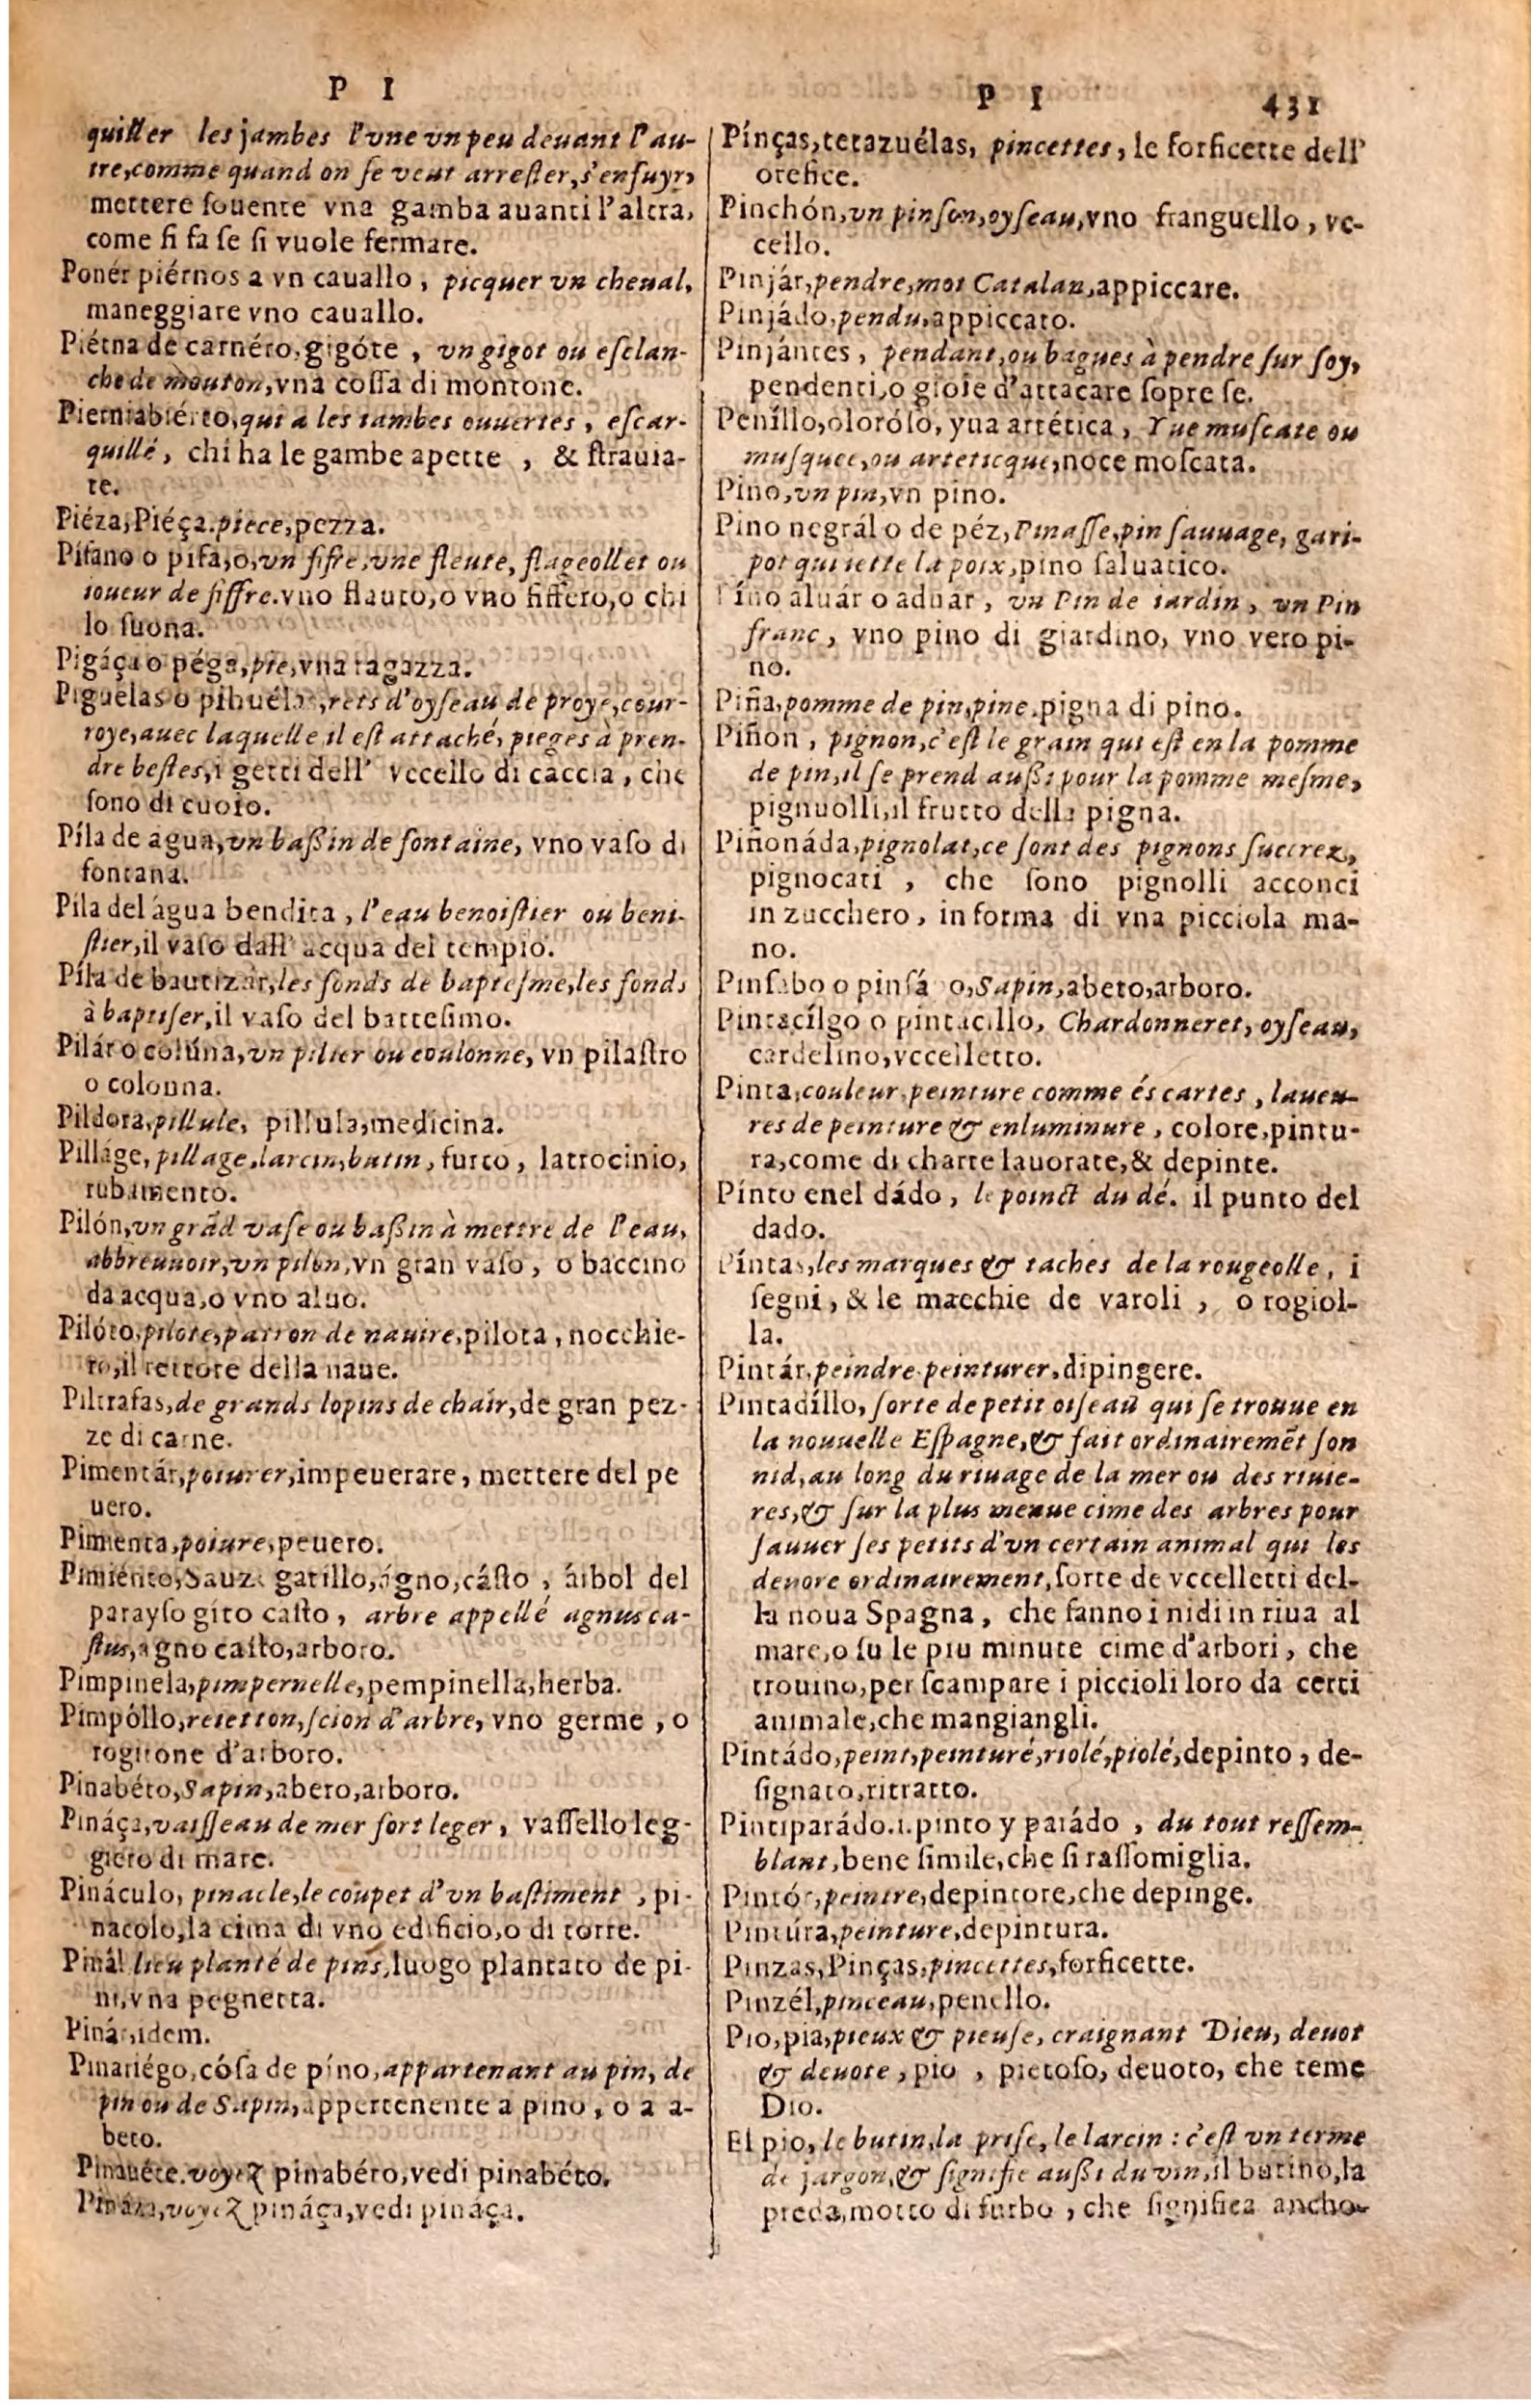 P I
quiller les jambes l'vne vn peu deuant l'au-
tre, comme quand on se veut arrester, s'ensuyr,
mettere souente vna gamba auanti l'altra,
come si fa se si vuole fermare.
Ponér piérnos a vn cauallo, picquer vn cheual,
maneggiare vno cauallo.
Piérna de carnéro, gigóte, vn gigot ou esclan-
che de mouton, vna cossa di montone.
Pierniabiérto, qui a les iambes ouuertes, escar-
quillé, chi ha le gambe aperte, & strauia-
te.
Piéza, Piéça. piece, pezza.
Pífano o pifa, o, vn fifre, vne fleute, flageollet ou
ioueur de fiffre. vno flauto, o vno fiffero, o chi
lo suona.
Pigáça o péga, pie, vna ragazza.
Piguelas o pihuélas, rets d'oyseau de proye, cour-
roye, auec laquelle il est attaché, pieges à pren-
dre bestes, i getti dell' vccello di caccia, che
sono di cuoio.
Píla de agua, vn baßin de fontaine, vno vaso di
fontana.
Píla del água bendita, l'eau benoistier ou beni-
stier, il vaso dall' acqua del tempio.
Píla de bautizár, les fonds de baptesme, les fonds
à baptiser, il vaso del battesimo.
Pilár o colúna, vn pilier ou coulonne, vn pilastro
o colonna.
Pildora, pillule, pillula, medicina.
Pilláge, pillage, larcin, butin, furto, latrocinio,
rubamento.
Pilón, vn grãd vase ou baßin à mettre de l'eau,
abbreuuoir, vn pilon, vn gran vaso, o baccino
da acqua, o vno aluo.
Pilóto, pilote, patron de nauire, pilota, nocchie-
ro, il rettore della naue.
Piltrafas, de grands lopins de chair, de gran pez-
ze di carne.
Pimentár, poiurer, impeuerare, mettere del pe
uero.
Pimienta, poiure, peuero.
Pimiénto, Sauze gatillo, ágno, cásto, árbol del
parayso gito casto, arbre appellé agnus ca-
stus, agno casto, arboro.
Pimpinela, pimpernelle, pempinella, herba.
Pimpóllo, reietton, scion d'arbre, vno germe, o
rogittone d'arboro.
Pinabéto, Sapin, abeto, arboro.
Pináça, vaisseau de mer fort leger, vassello leg-
giero di mare.
Pináculo, pinacle, le coupet d'vn bastiment, pi-
nacolo, la cima di vno edificio, o di torre.
Pinál lieu planté de pins, luogo plantato de pi-
ni, vna pegnetta.
Pinár, idem.
Pinariégo, cósa de píno, appartenant au pin, de
pin ou de Sapin, appertenente a pino, o a a-
beto.
Pinauéte. voyez pinabéto, vedi pinabéto.
Pináza, voyez pináça, vedi pináça.
P I 431
Pínças, terazuélas, pincettes, le forficette dell'
orefice.
Pinchón, vn pinson, oyseau, vno franguello, vc-
cello.
Pinjár, pendre, mot Catalan, appiccare.
Pinjádo, pendu, appiccato.
Pinjántes, pendant, ou bagues à pendre sur soy,
pendenti, o gioie d'attacare sopre se.
Peníllo, oloróso, yua artética, Yue muscate ou
musquee, ou arteticque, noce moscata.
Pino, vn pin, vn pino.
Pino negrál o de péz, Pinasse, pin sauuage, gari-
pot qui iette la poix, pino saluatico.
Píno aluár o aduar, vn Pin de iardin, vn Pin
franc, vno pino di giardino, vno vero pi-
no.
Piña, pomme de pin, pine. pigna di pino.
Piñon, pignon, c'est le grain qui est en la pomme
de pin, il se prend außi pour la pomme mesme,
pignuolli, il frutto della pigna.
Piñonáda, pignolat, ce sont des pignons succrez,
pignocati, che sono pignolli acconci
in zucchero, in forma di vna picciola ma-
no.
Pinsabo o pinsá o, Sapin, abeto, arboro.
Pintacílgo o pintacillo, Chardonneret, oyseau,
cardelino, vccelletto.
Pinta, couleur, peinture comme és cartes, laueu-
res de peinture & enluminure, colore, pintu-
ra, come di charte lauorate, & depinte.
Pínto en el dádo, le poinct du dé. il punto del
dado.
Píntas, les marques & taches de la rougeolle, i
segni, & le macchie de varoli, o rogiol-
la.
Pintár, peindre peinturer, dipingere.
Pintadíllo, sorte de petit oiseau qui se trouue en
la nouuelle Espagne, & fait ordinairemẽt son
nid, au long du riuage de la mer ou des riuie-
res, & sur la plus menue cime des arbres pour
sauuer ses petits d'vn certain animal qui les
deuore ordinairement, sorte de vccelletti del-
la noua Spagna, che fanno i nidi in riua al
mare, o su le piu minute cime d'arbori, che
trouino, per scampare i piccioli loro da certi
animale, che mangiangli.
Pintádo, peint, peinturé, riolé, piolé, depinto, de-
signato, ritratto.
Pintiparádo. i. pinto y parádo, du tout ressem-
blant, bene simile, che si rassomiglia.
Pintór, peintre, depintore, che depinge.
Pintúra, peinture, depintura.
Pinzas, Pinças, pincettes, forficette.
Pinzél, pinceau, penello.
Pio, pia, pieux & pieuse, craignant Dieu, deuot
& deuote, pio, pietoso, deuoto, che teme
Dio.
El pio, le butin, la prise, le larcin: c'est vn terme
de jargon, & signifie außi du vin, il butino, la
preda, motto di furbo, che significa ancho-